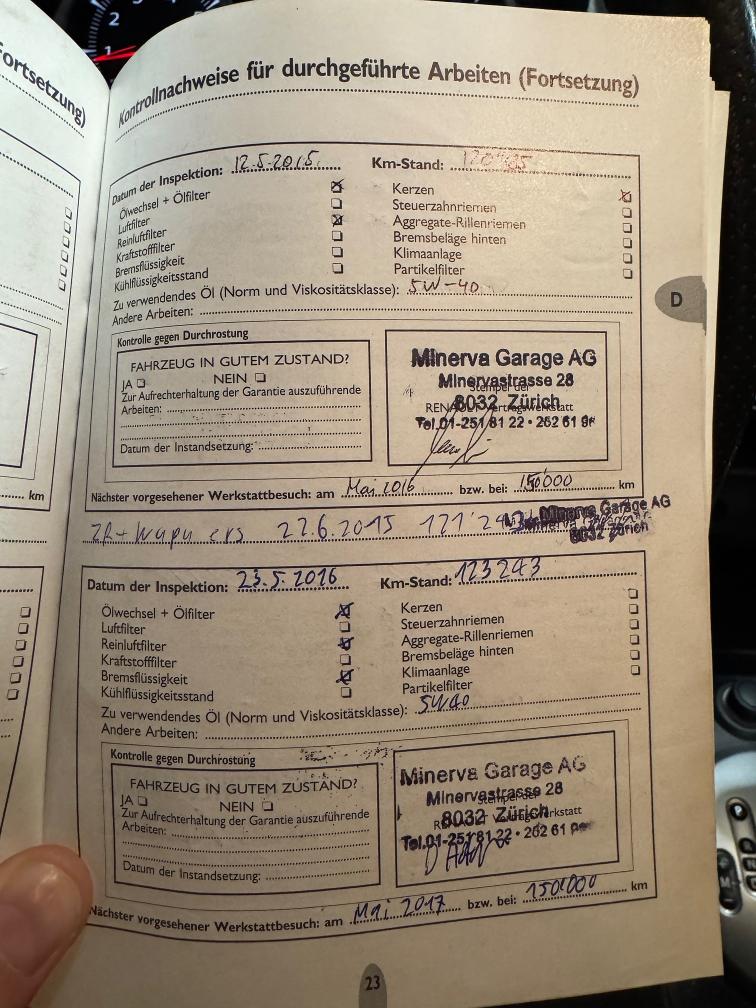 ortsetzung)
km
2
1
Kontrollnachweise für durchgeführte Arbeiten (Fortsetzung)
Datum der Inspektion: 12.5.2015 Km-Stand:
Ölwechsel + Ölfilter
Luftfilter
Reinluftfilter
Kraftstofffilter
Bremsflüssigkeit
Kühlflüssigkeitsstand
Kerzen
Steuerzahnriemen
Aggregate-Rillenriemen
Bremsbeläge hinten
Klimaanlage
Partikelfilter
Zu verwendendes Öl (Norm und Viskositätsklasse): 5W-40
Andere Arbeiten:
Kontrolle gegen Durchrostung
FAHRZEUG IN GUTEM ZUSTAND?
JA NEIN
Zur Aufrechterhaltung der Garantie auszuführende
Arbeiten:
Datum der Instandsetzung:
Minerva Garage AG
Minervastrasse 28
Stempel der
8032 Zürich
Tel.01-251 81 22 • 262 61
Nächster vorgesehener Werkstattbesuch: am Mai 2016 bzw. bei: 150'000 km
ZR + Wapu ers 22.6.2015
Minerva Garage AG
8032 Zürich
D
Datum der Inspektion: 23.5.2016 Km-Stand: 123243
Ölwechsel + Ölfilter
Luftfilter
Reinluftfilter
Kraftstofffilter
Bremsflüssigkeit
Kühlflüssigkeitsstand
Kerzen
Steuerzahnriemen
Aggregate-Rillenriemen
Bremsbeläge hinten
Klimaanlage
Partikelfilter
Zu verwendendes Öl (Norm und Viskositätsklasse): 5W40
Andere Arbeiten:
Kontrolle gegen Durchrostung
FAHRZEUG IN GUTEM ZUSTAND?
JA NEIN
Zur Aufrechterhaltung der Garantie auszuführende
Arbeiten:
Datum der Instandsetzung:
Minerva Garage AG
Minervastrasse 28
8032 Zürich
Tel.01-251 81 22 • 262 61
Nächster vorgesehener Werkstattbesuch: am Mai 2017 bzw. bei: 150'000 km
23